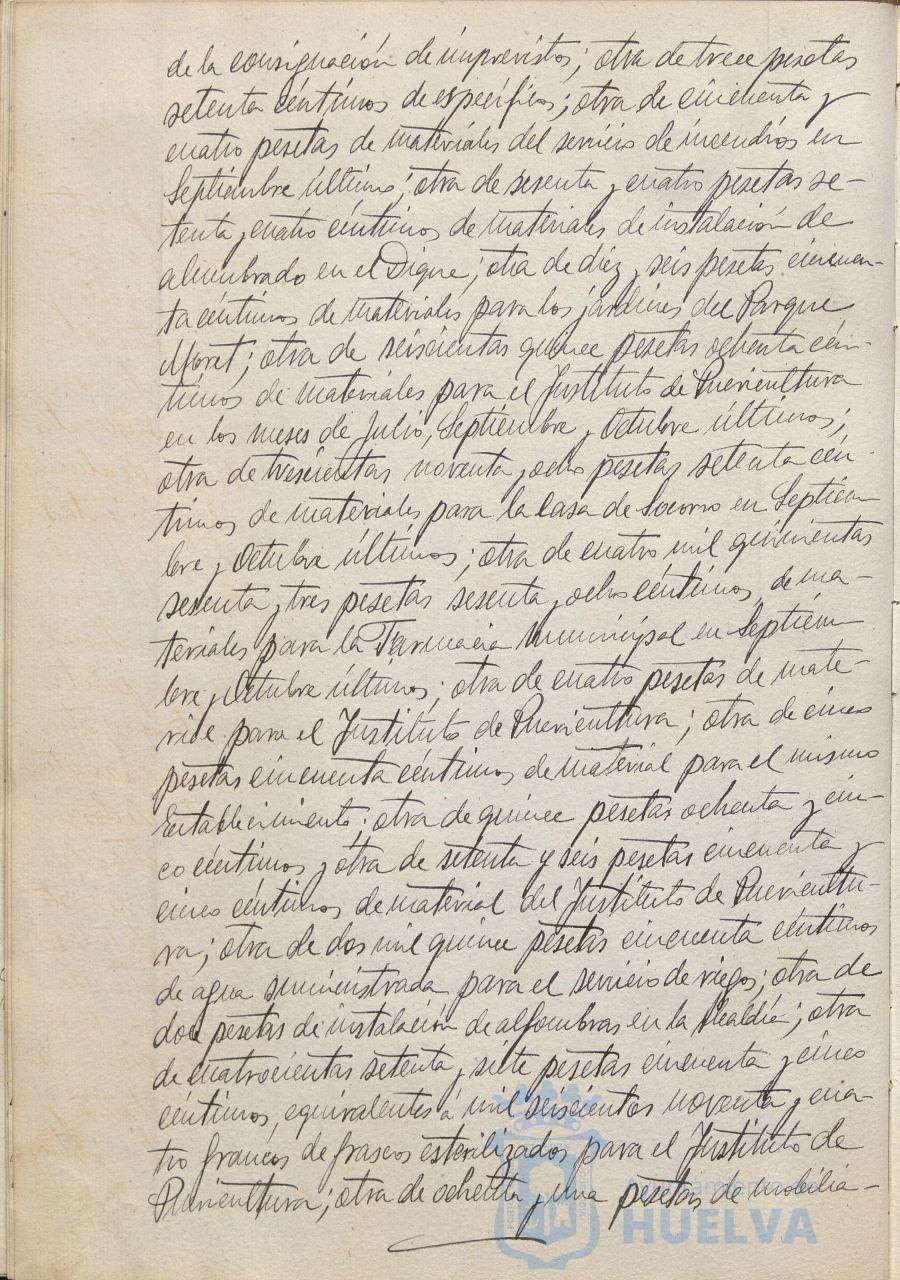 de la consignación de imprevistos; otra de trece pesetas
setenta céntimos de específicos; otra de cincuenta y
cuatro pesetas de materiales del servicio de incendios en
Septiembre último; otra de sesenta y cuatro pesetas se-
tenta y cuatro céntimos de materiales de instalación de
alumbrado en el Dique; otra de diez y seis pesetas cincuen-
ta céntimos de materiales para los jardines del Parque
Moret; otra de seiscientas quince pesetas ochenta cén-
timos de materiales para el Instituto de Puericultura
en los meses de Julio, Septiembre y Octubre últimos;
otra de trescientas noventa y ocho pesetas setenta cén-
timos de materiales para la Casa de Socorro en Septiem-
bre y Octubre últimos; otra de cuatro mil quinientas
sesenta y tres pesetas sesenta y ocho céntimos, de ma-
teriales para la Farmacia Municipal en Septiem-
bre y Octubre últimos; otra de cuatro pesetas de mate-
rial para el Instituto de Puericultura; otra de cinco
pesetas cincuenta céntimos de material para el mismo
Establecimiento; otra de quince pesetas ochenta y cin-
co céntimos y otra de setenta y seis pesetas cincuenta y
cinco céntimos de material del Instituto de Puericultu-
ra; otra de dos mil quince pesetas cincuenta céntimos
de agua suministrada para el servicio de riegos; otra de
doce pesetas de instalación de alfombras en la Alcaldía; otra
de cuatrocientas setenta y siete pesetas cincuenta y cinco
céntimos, equivalentes á mil seiscientos noventa y cua-
tro francos de frascos esterilizados para el Instituto de
Puericultura; otra de ochenta y una pesetas de mobilia-
Ayuntamiento de
HUELVA